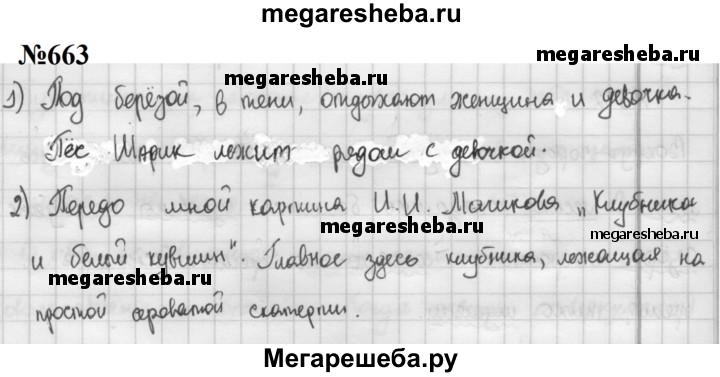 megaresheba.ru
№663
megaresheba.ru
1) Под берёзой, в тени, отдыхают женщина и девочка.
Пёс Шарик лежит рядом с девочкой.
2) Передо мной картина И.И. Машкова „Клубника
megaresheba.ru
megaresheba.ru
и белый кувшин". Главное здесь клубника, лежащая на
megaresheba.ru
простой сероватой скатерти.
megaresheba.ru
Мегарешеба.ру